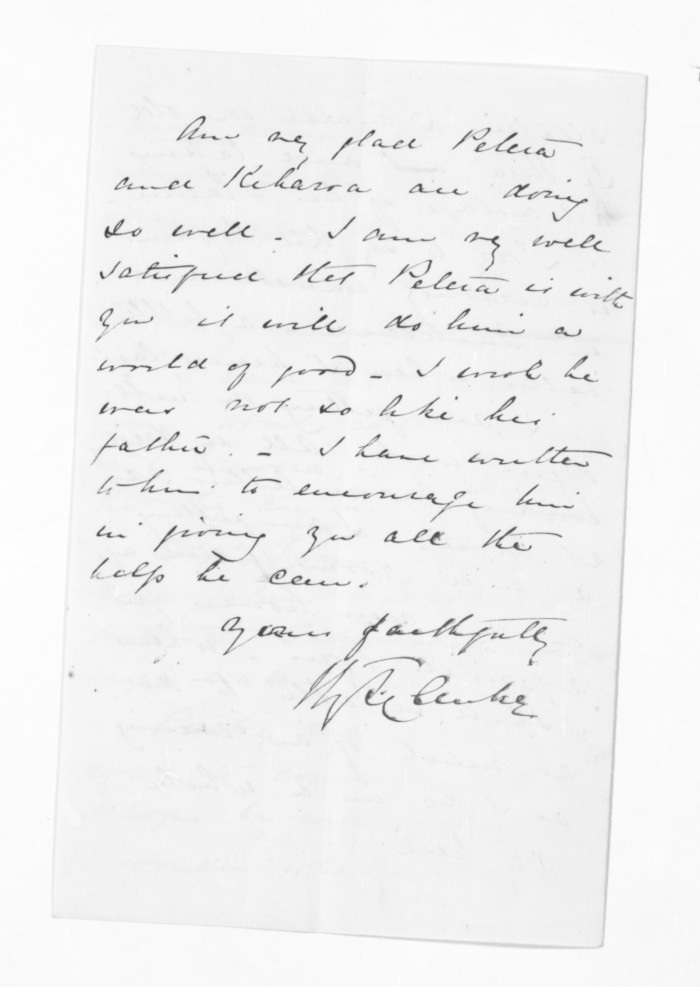 Am vy glad Peleta
and Kiharoa are doing
so well - I am vy well
satisfied that Peleta is with
you it will do him a
world of good - I wish he
was not so like his
father. - I have written
to him to encourage him
in giving you all the
help he can.
Yours faithfully
Clarke